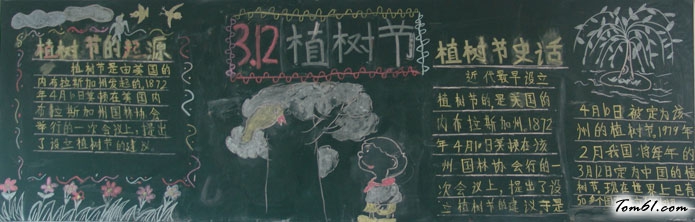 植树节的起源
植树节是由美国的
内布拉斯加州发起的,1872
年4月10日莫顿在美国内
布拉斯加州园林协会
举行的一次会议上,提出
了设立植树节的建议。
3.12植树节
植树节史话
近代最早设立
植树节的是美国的
内布拉斯加州。1872
年4月10日莫顿在该
州园林协会举行的一
次会议上,提出了设
立植树节的建议
4月10日被定为该
州的植树节,1979年
2月我国将每年的
3月12日定为中国的植
树节,现在世界上已有
50多个
Tom61.com